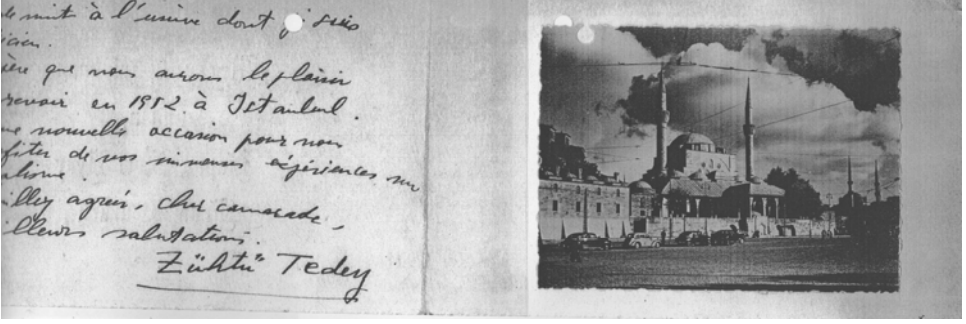 de nuit à l'usine dont je suis
icien.
ère que nous aurons le plaisir
revoir en 1952 à Istanbul.
ne nouvelle occasion pour nous
fiter de vos immenses expériences sur
alisme.
illez agréer, cher camarade,
illeurs salutations.
Zühtü Tedey